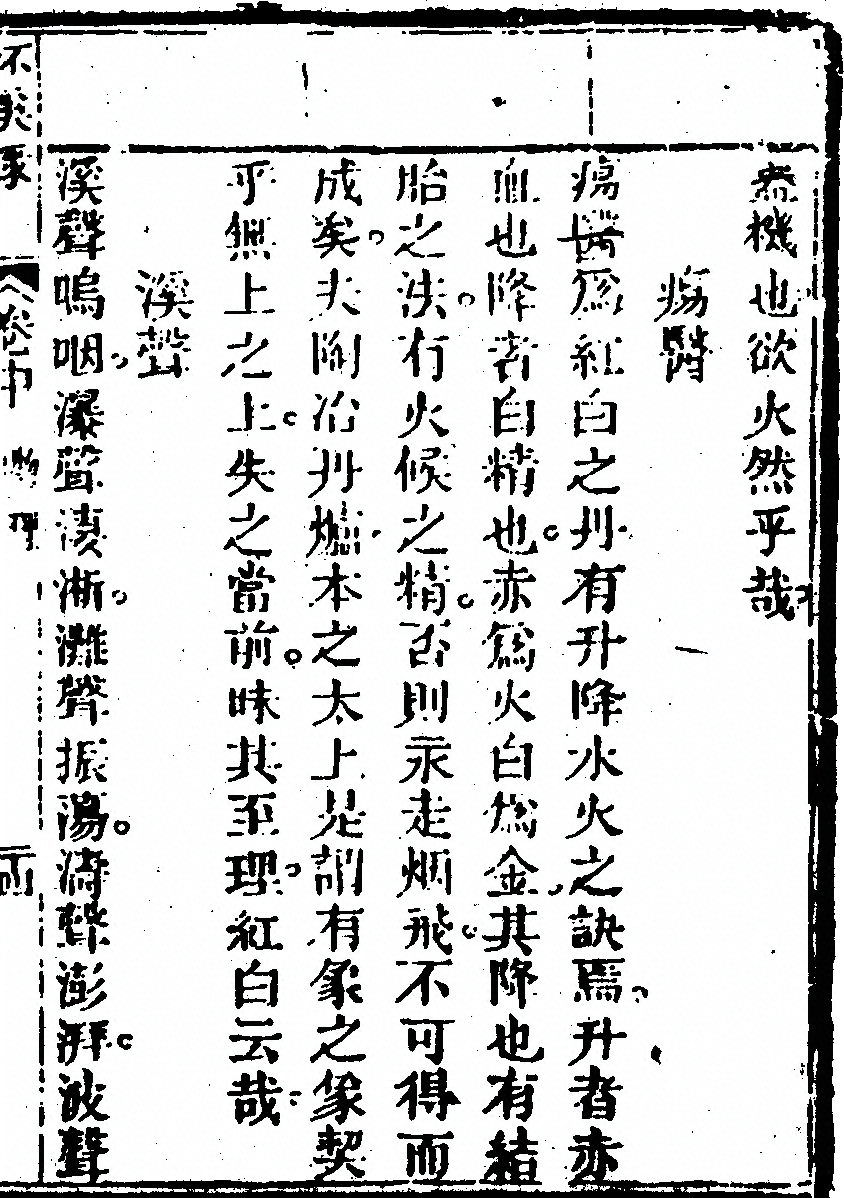 無機也欲火然乎哉
瘍醫
瘍醫爲紅白之丹有升降水火之訣焉升者赤
血也降者白精也赤爲火白爲金其降也有結
胎之法有火候之精否則汞走烟飛不可得而
成矣夫陶冶丹爐本之太上是謂有象之象契
乎無上之上失之當前昧其至理紅白云哉
溪聲
溪聲嗚咽瀑聲漬淅灘聲振蕩濤聲澎湃波聲
卷中